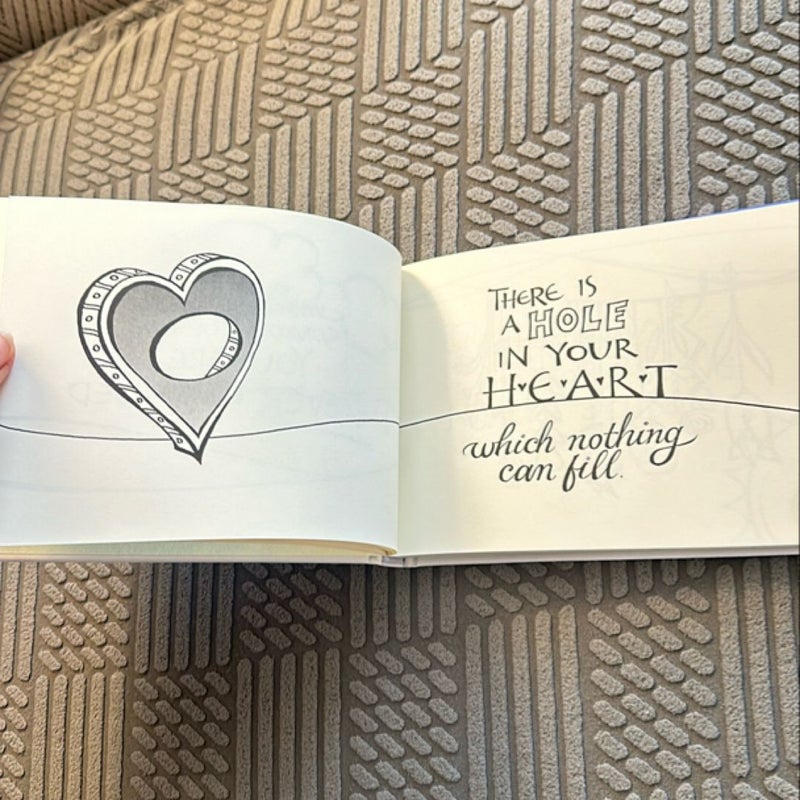 THERE IS
A HOLE
IN YOUR
H•E•A•R•T
which nothing
can fill.